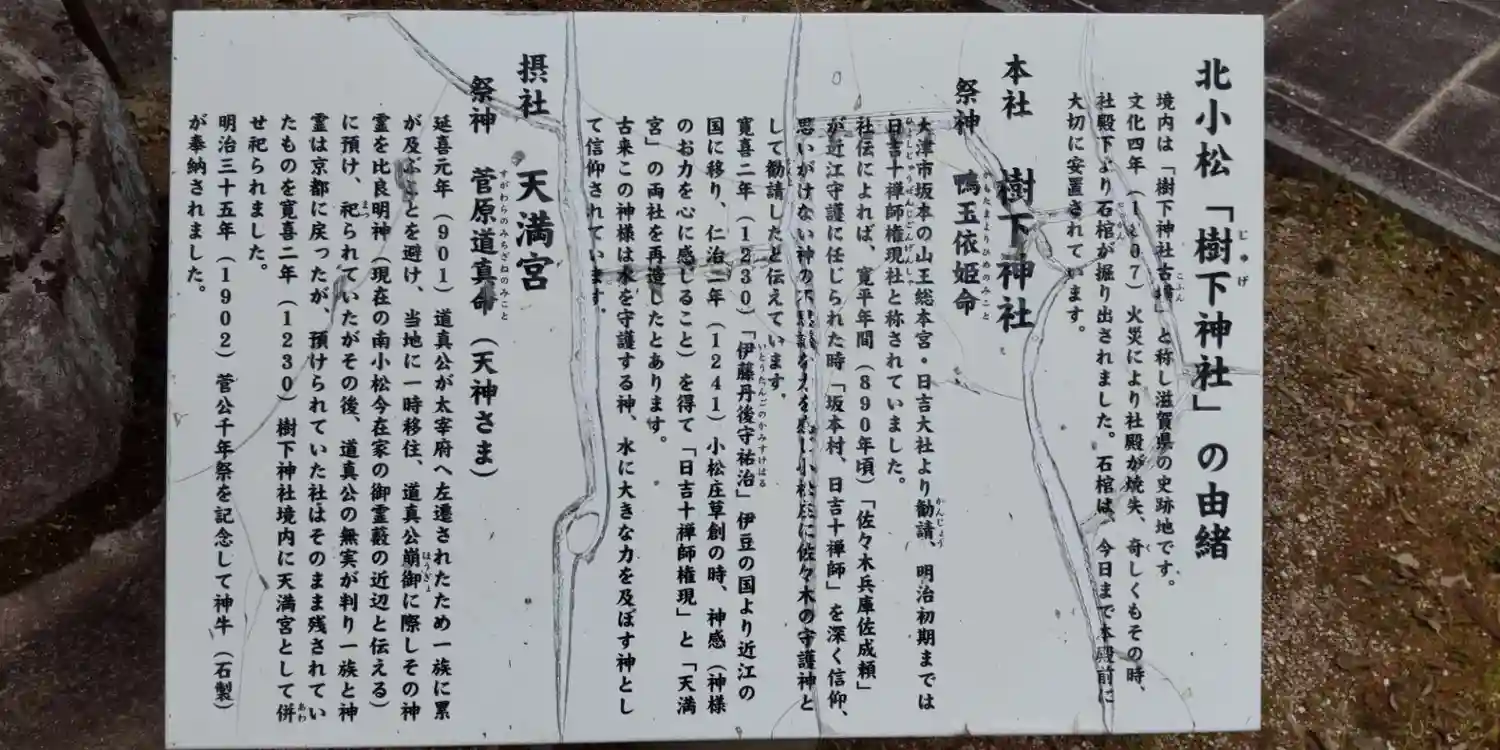 北小松「樹下神社」の由緒
じゅげ
境内は「樹下神社古墳」と称し滋賀県の史跡地です。
こふん
文化四年(1807)火災により社殿が焼失、奇しくもその時、
く
社殿下より石棺が掘り出されました。石棺は、今日まで本殿前に
せっかん
大切に安置されています。
本社 樹下神社
祭神 鴨玉依姫命
かもたまよりひめのみこと
大津市坂本の山王総本宮・日吉大社より勧請、明治初期までは
かんじょう
日吉十禅師権現社と称されていました。
ひよしじゅうぜんじごんげんしゃ
社伝によれば、寛平年間(890年頃)「佐々木兵庫佐成頼」
が近江守護に任じられた時「坂本村、日吉十禅師」を深く信仰、
思いがけない神の不思議な力を感じ小松庄に佐々木の守護神と
して勧請したと伝えています。
寛喜二年(1230)「伊藤丹後守祐治」伊豆の国より近江の
いとうたんごのかみすけはる
国に移り、仁治二年(1241)小松庄草創の時、神感(神様
のお力を心に感じること)を得て「日吉十禅師権現」と「天満
宮」の両社を再造したとあります。
古来この神様は水を守護する神、水に大きな力を及ぼす神とし
て信仰されています。
摂社 天満宮
祭神 菅原道真命(天神さま)
すがわらのみちざねのみこと
延喜元年(901)道真公が太宰府へ左遷されたため一族に累
が及ぶことを避け、当地に一時移住、道真公崩御に際しその神
ほうぎょ
霊を比良明神(現在の南小松今在家の御霊藪の近辺と伝える)
に預け、祀られていたがその後、道真公の無実が判り一族と神
まつ
霊は京都に戻ったが、預けられていた社はそのまま残されてい
たものを寛喜二年(1230)樹下神社境内に天満宮として併
あわ
せ祀られました。
明治三十五年(1902)菅公千年祭を記念して神牛(石製)
が奉納されました。